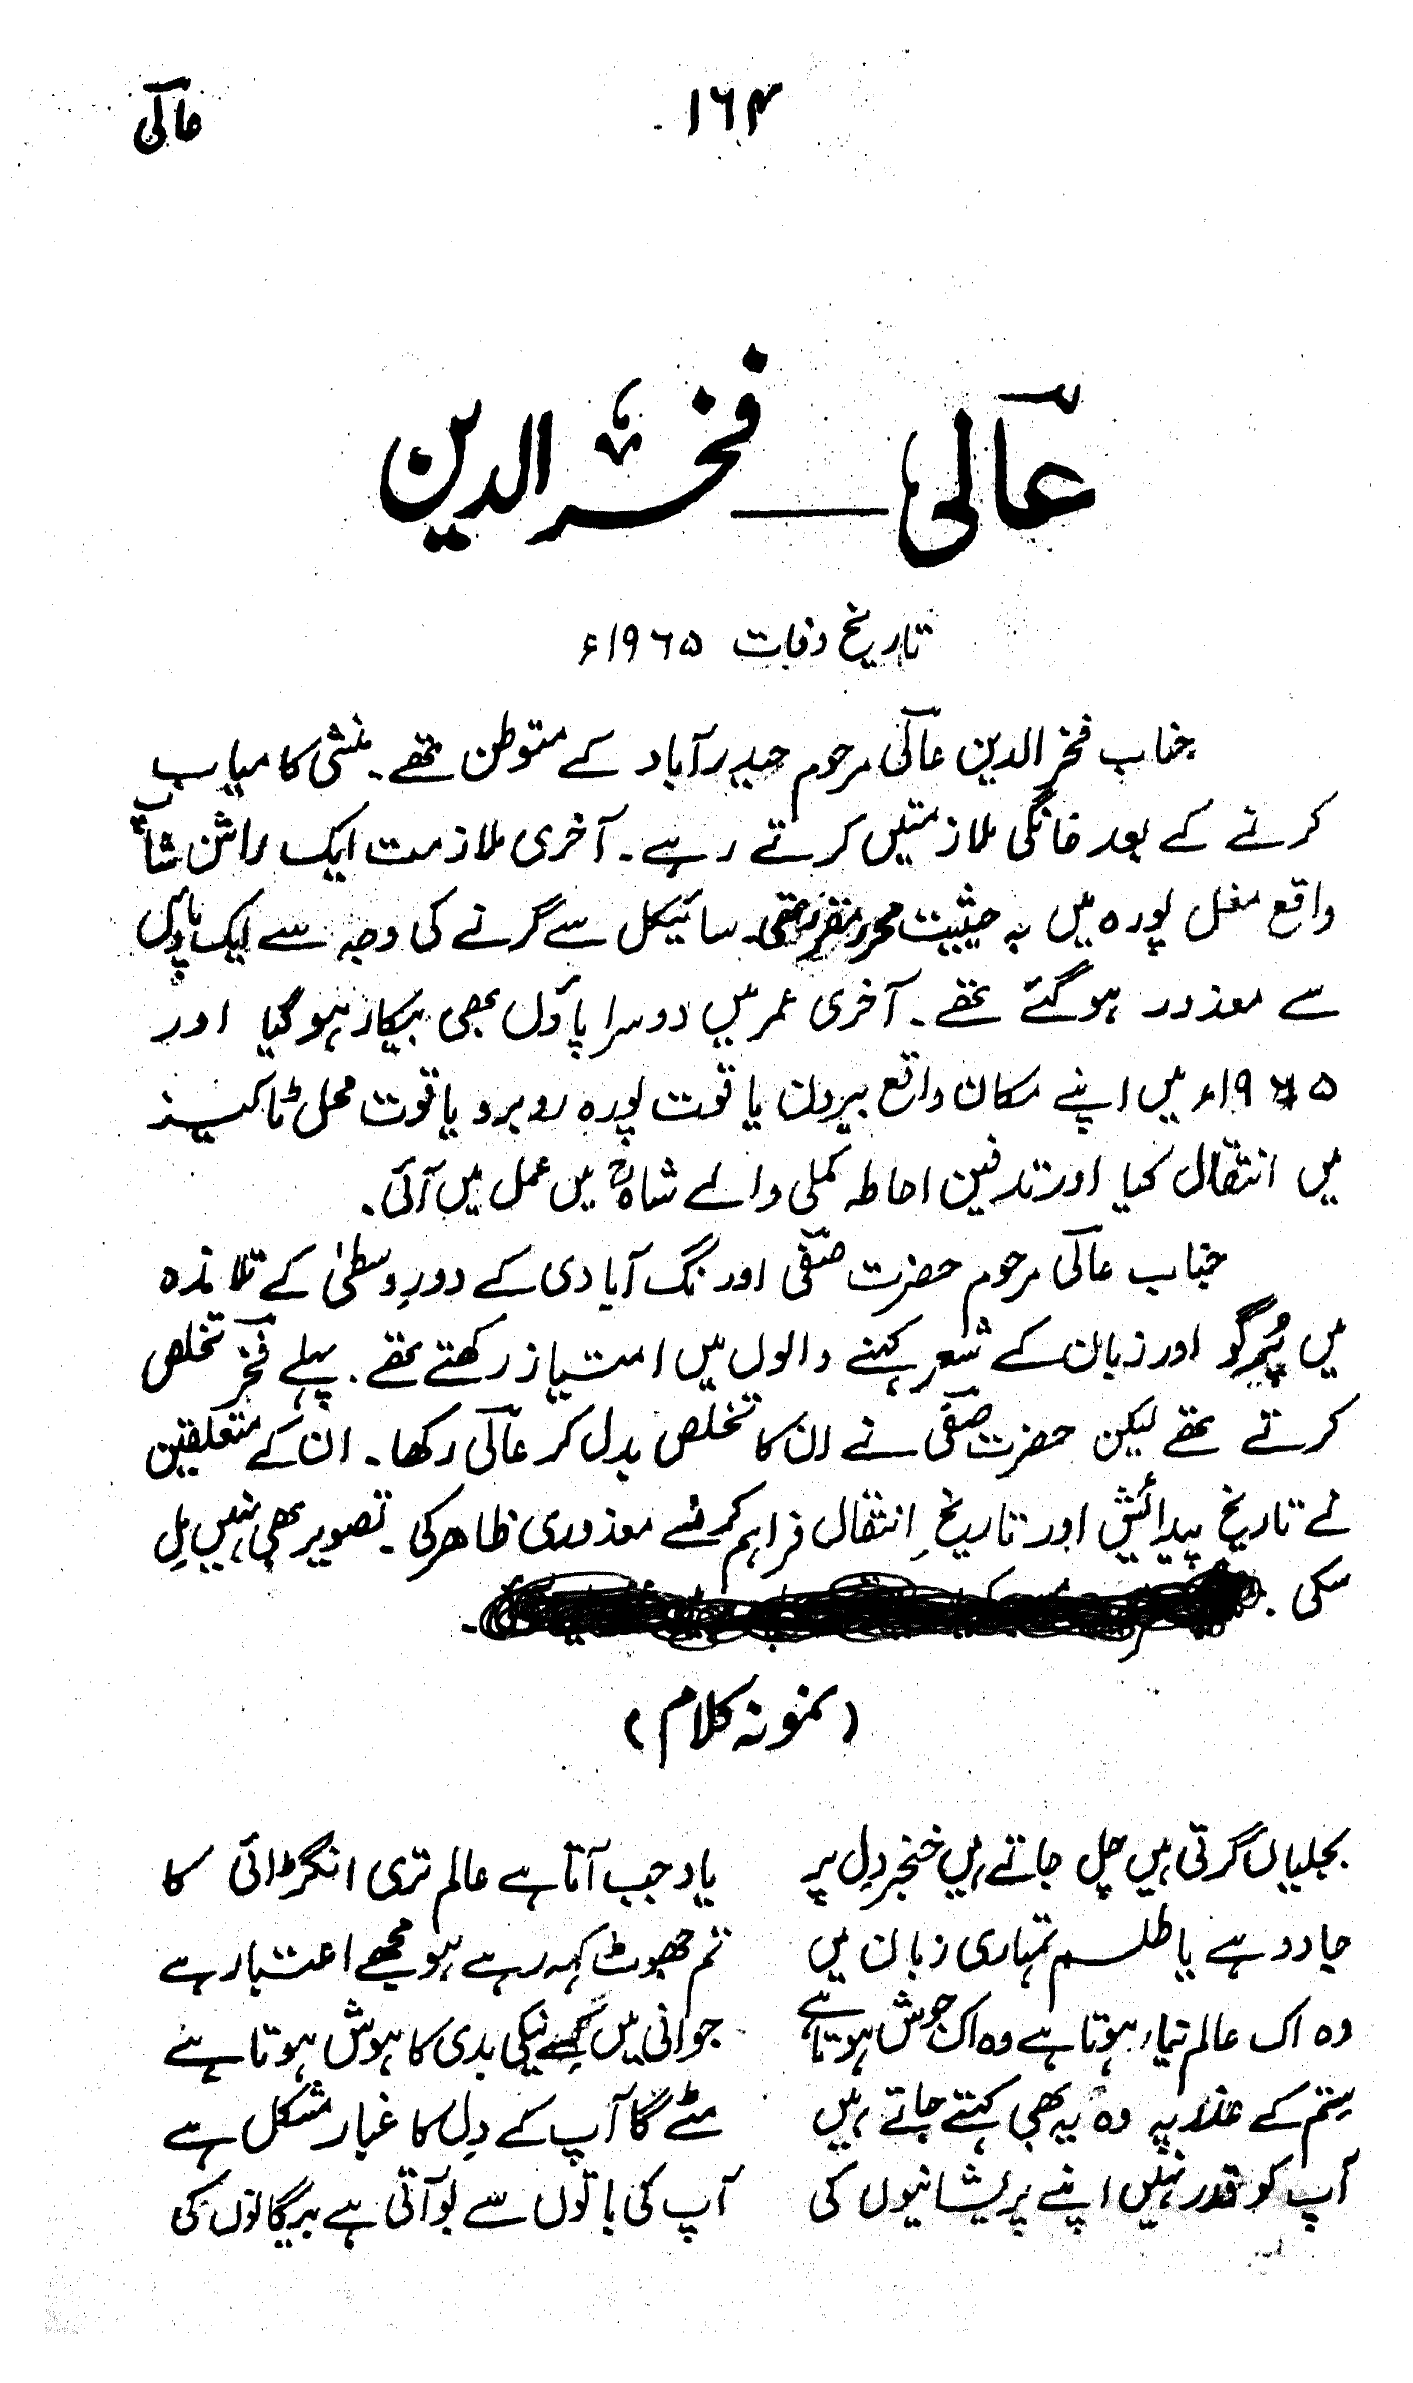 ۱۶۴
عالؔی
عالؔی ـــ فخر الدین
تاریخ وفات ۱۹۶۵ء
جناب فخر الدین عالؔی مرحوم حیدرآباد کے متوطن تھے۔ منشی کامیاب
کرنے کے بعد خانگی ملازمتیں کرتے رہے۔ آخری ملازمت ایک راشن شاپ
واقع مغل پورہ میں بہ حیثیت محرر مقرر تھی۔ سائیکل سے گرنے کی وجہ سے ایک پاؤں
سے معذور ہوگئے تھے۔ آخری عمر میں دوسرا پاؤں بھی بیکار ہوگیا اور
۱۹۶۵ء میں اپنے مکان واقع بیرون یاقوت پورہ روبرو یاقوت محل ٹاکیز
میں انتقال کیا اور تدفین احاطہ کملی والے شاہؒ میں عمل میں آئی۔
جناب عالؔی مرحوم حضرت صفؔی اورنگ آبادی کے دورِ وسطیٰ کے تلامذہ
میں پُرگو اور زبان کے شعر کہنے والوں میں امتیاز رکھتے تھے۔ پہلے فخؔر تخلص
کرتے تھے لیکن حضرت صفؔی نے ان کا تخلص بدل کر عالؔی رکھا۔ ان کے متعلقین
نے تاریخ پیدائش اور تاریخِ انتقال فراہم کرنے معذوری ظاہر کی۔ تصویر بھی نہیں مِل
سکی۔
(نمونہ کلام)
بجلیاں گرتی ہیں چل جاتے ہیں خنجر دِل پر یاد جب آتا ہے عالم تری انگڑائی کا
جادو ہے یا طلسم تمہاری زبان میں تم جھوٹ کہہ رہے ہو مجھے اعتبار ہے
وہ اک عالم نیا ہوتا ہے وہ اک جوش ہوتا ہے جوانی میں کِسے نیکی بدی کا ہوش ہوتا ہے
ستم کے عذر پہ وہ یہ بھی کہتے جاتے ہیں مٹے گا آپ کے دِل کا غبار مشکل ہے
آپ کو قدر نہیں اپنے پریشانیوں کی آپ کی باتوں سے بو آتی ہے بیگانوں کی